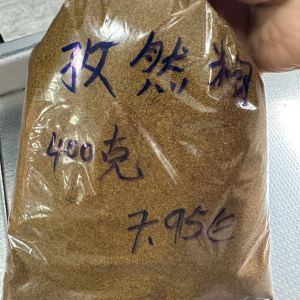 孜然粉
400克
7.95€